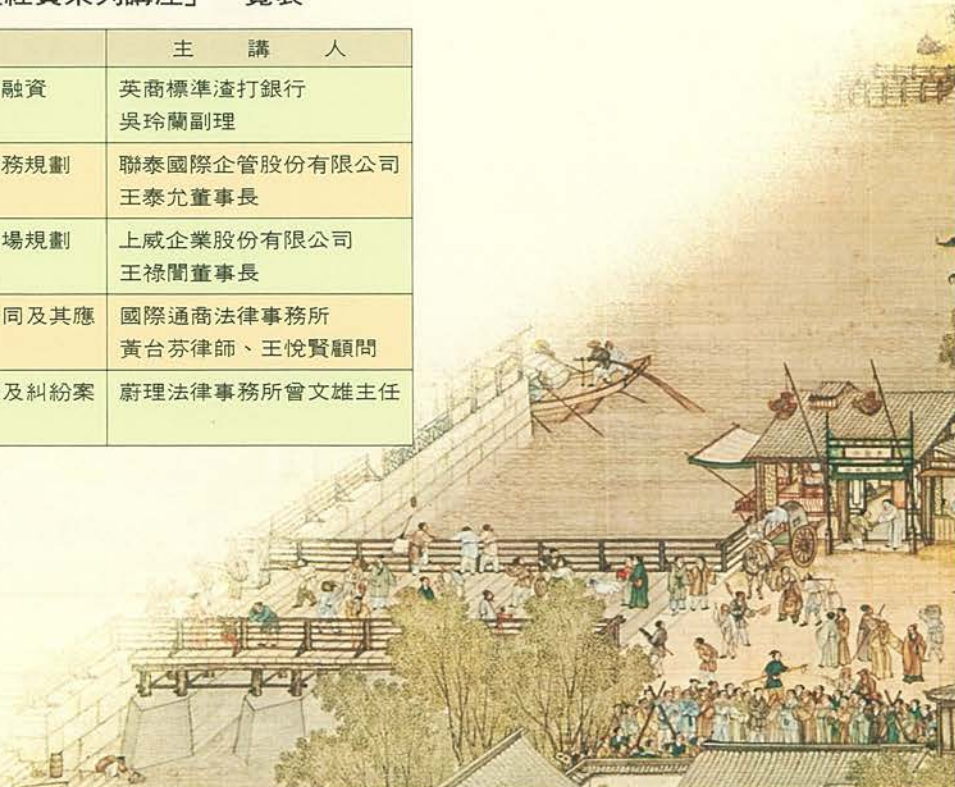 經貿系列講座」一覽表
主 講 人
融資
英商標準渣打銀行
吳玲蘭副理
務規劃
聯泰國際企管股份有限公司
王泰允董事長
場規劃
上威企業股份有限公司
王祿誾董事長
同及其應
國際通商法律事務所
黃台芬律師、王悅賢顧問
及糾紛案
蔚理法律事務所曾文雄主任